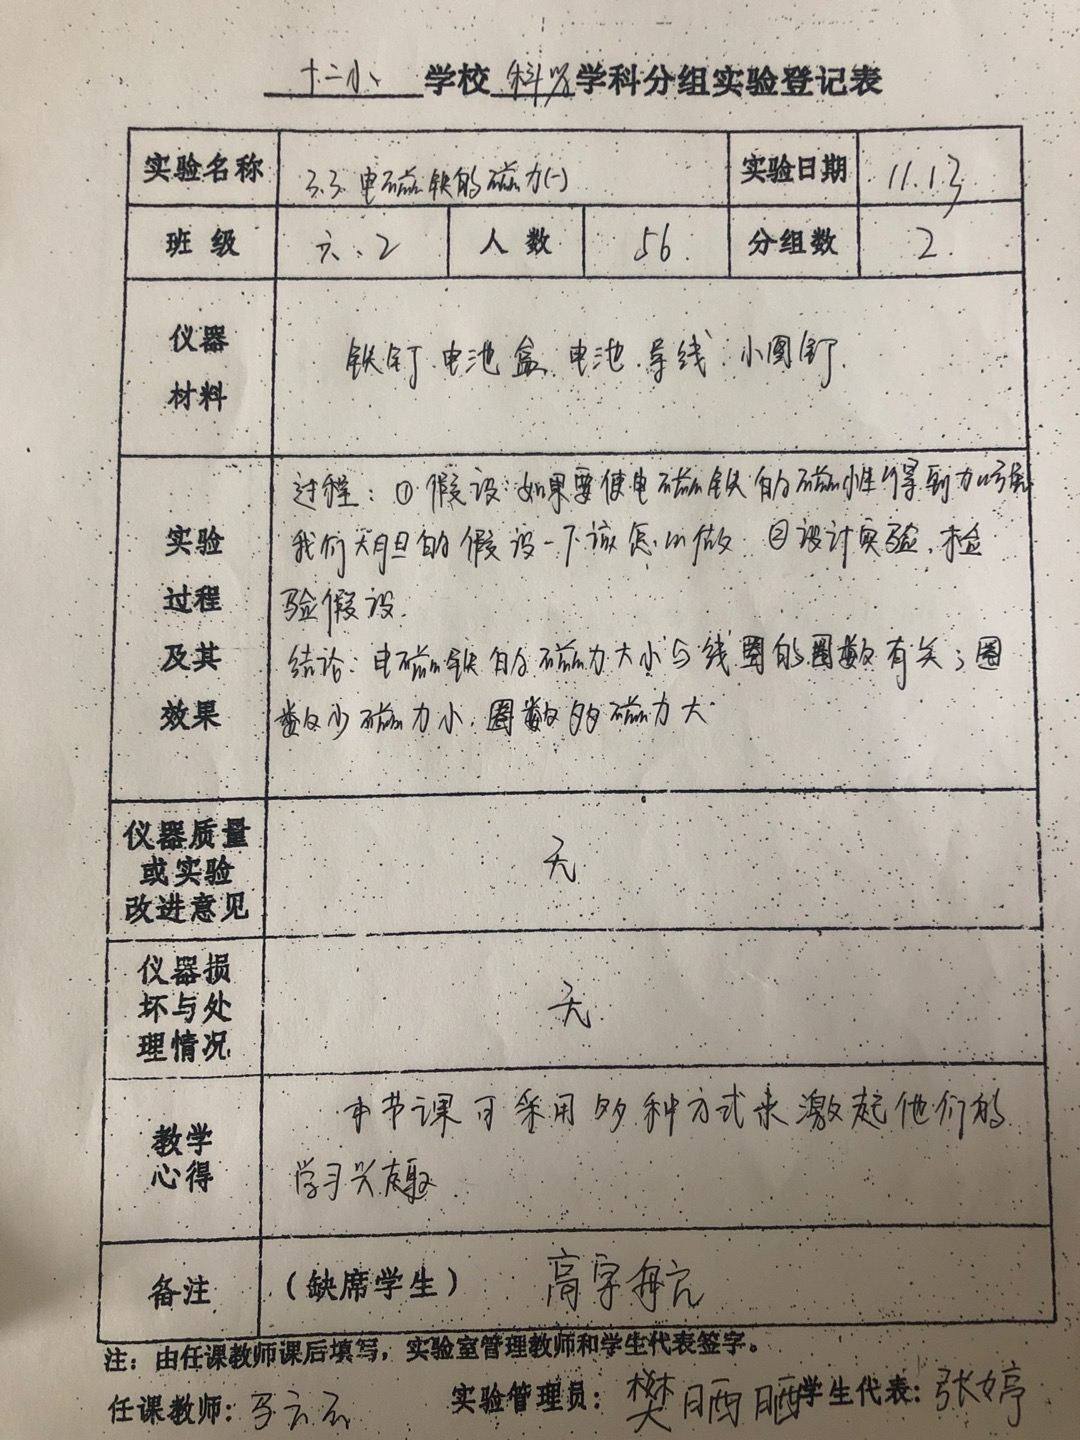 十二小 学校 科学 学科分组实验登记表
实验名称 3.3 电磁铁的磁力(一) 实验日期 11.13
班级 六.2 人数 56. 分组数 2.
仪器材料 铁钉.电池盒.电池.导线.小图钉.
实验过程及其效果
过程：①假设：如果要使电磁铁的磁性得到加强
我们大胆的假设一下该怎么做.②设计实验.检
验假设.
结论：电磁铁的磁力大小与线圈的圈数有关；圈
数少磁力小.圈数多磁力大.
仪器质量或实验改进意见 无
仪器损坏与处理情况 无.
教学心得 本节课可采用多种方式来激起他们的
学习兴趣
备注 （缺席学生） 高宇航
注：由任课教师课后填写，实验室管理教师和学生代表签字。
任课教师： 实验管理员：樊晒晒 学生代表：张婷